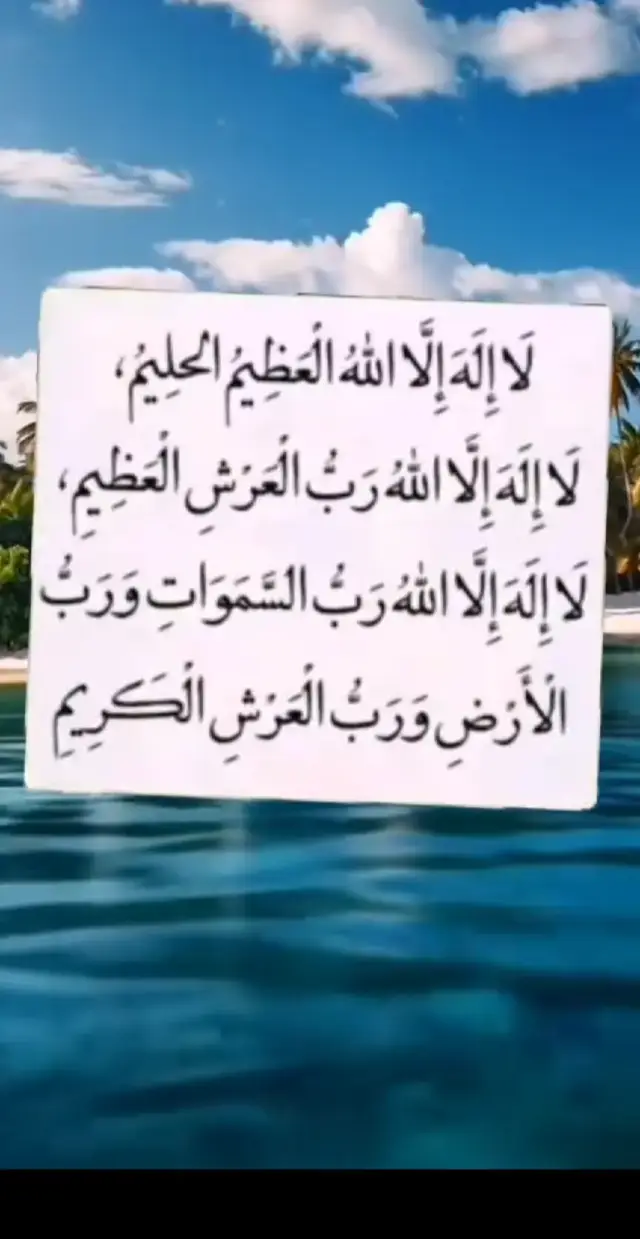 لَا إِلَهَ إِلَّا اللهُ الْعَظِيمُ الحلِيمُ،
لَا إِلَهَ إِلَّا اللهُ رَبُّ الْعَرْشِ الْعَظِيمِ،
لَا إِلَهَ إِلَّا اللهُ رَبُّ السَّمَوَاتِ وَرَبُّ
الْأَرْضِ وَرَبُّ الْعَرْشِ الْكَرِيمِ